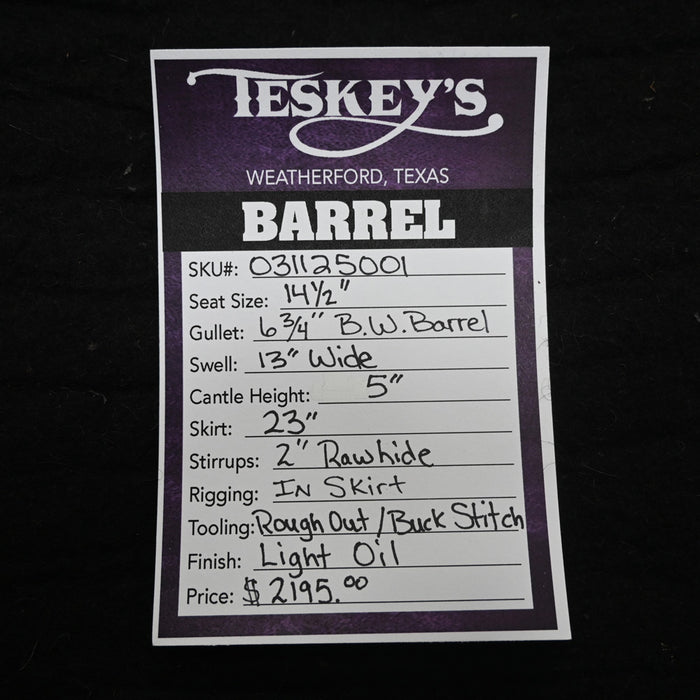 TESKEY'S
WEATHERFORD, TEXAS
BARREL
SKU#: 031125001
Seat Size: 14 1/2"
Gullet: 6 3/4" B.W. Barrel
Swell: 13" Wide
Cantle Height: 5"
Skirt: 23"
Stirrups: 2" Rawhide
Rigging: In Skirt
Tooling: Rough Out / Buck Stitch
Finish: Light Oil
Price: $ 2195.00